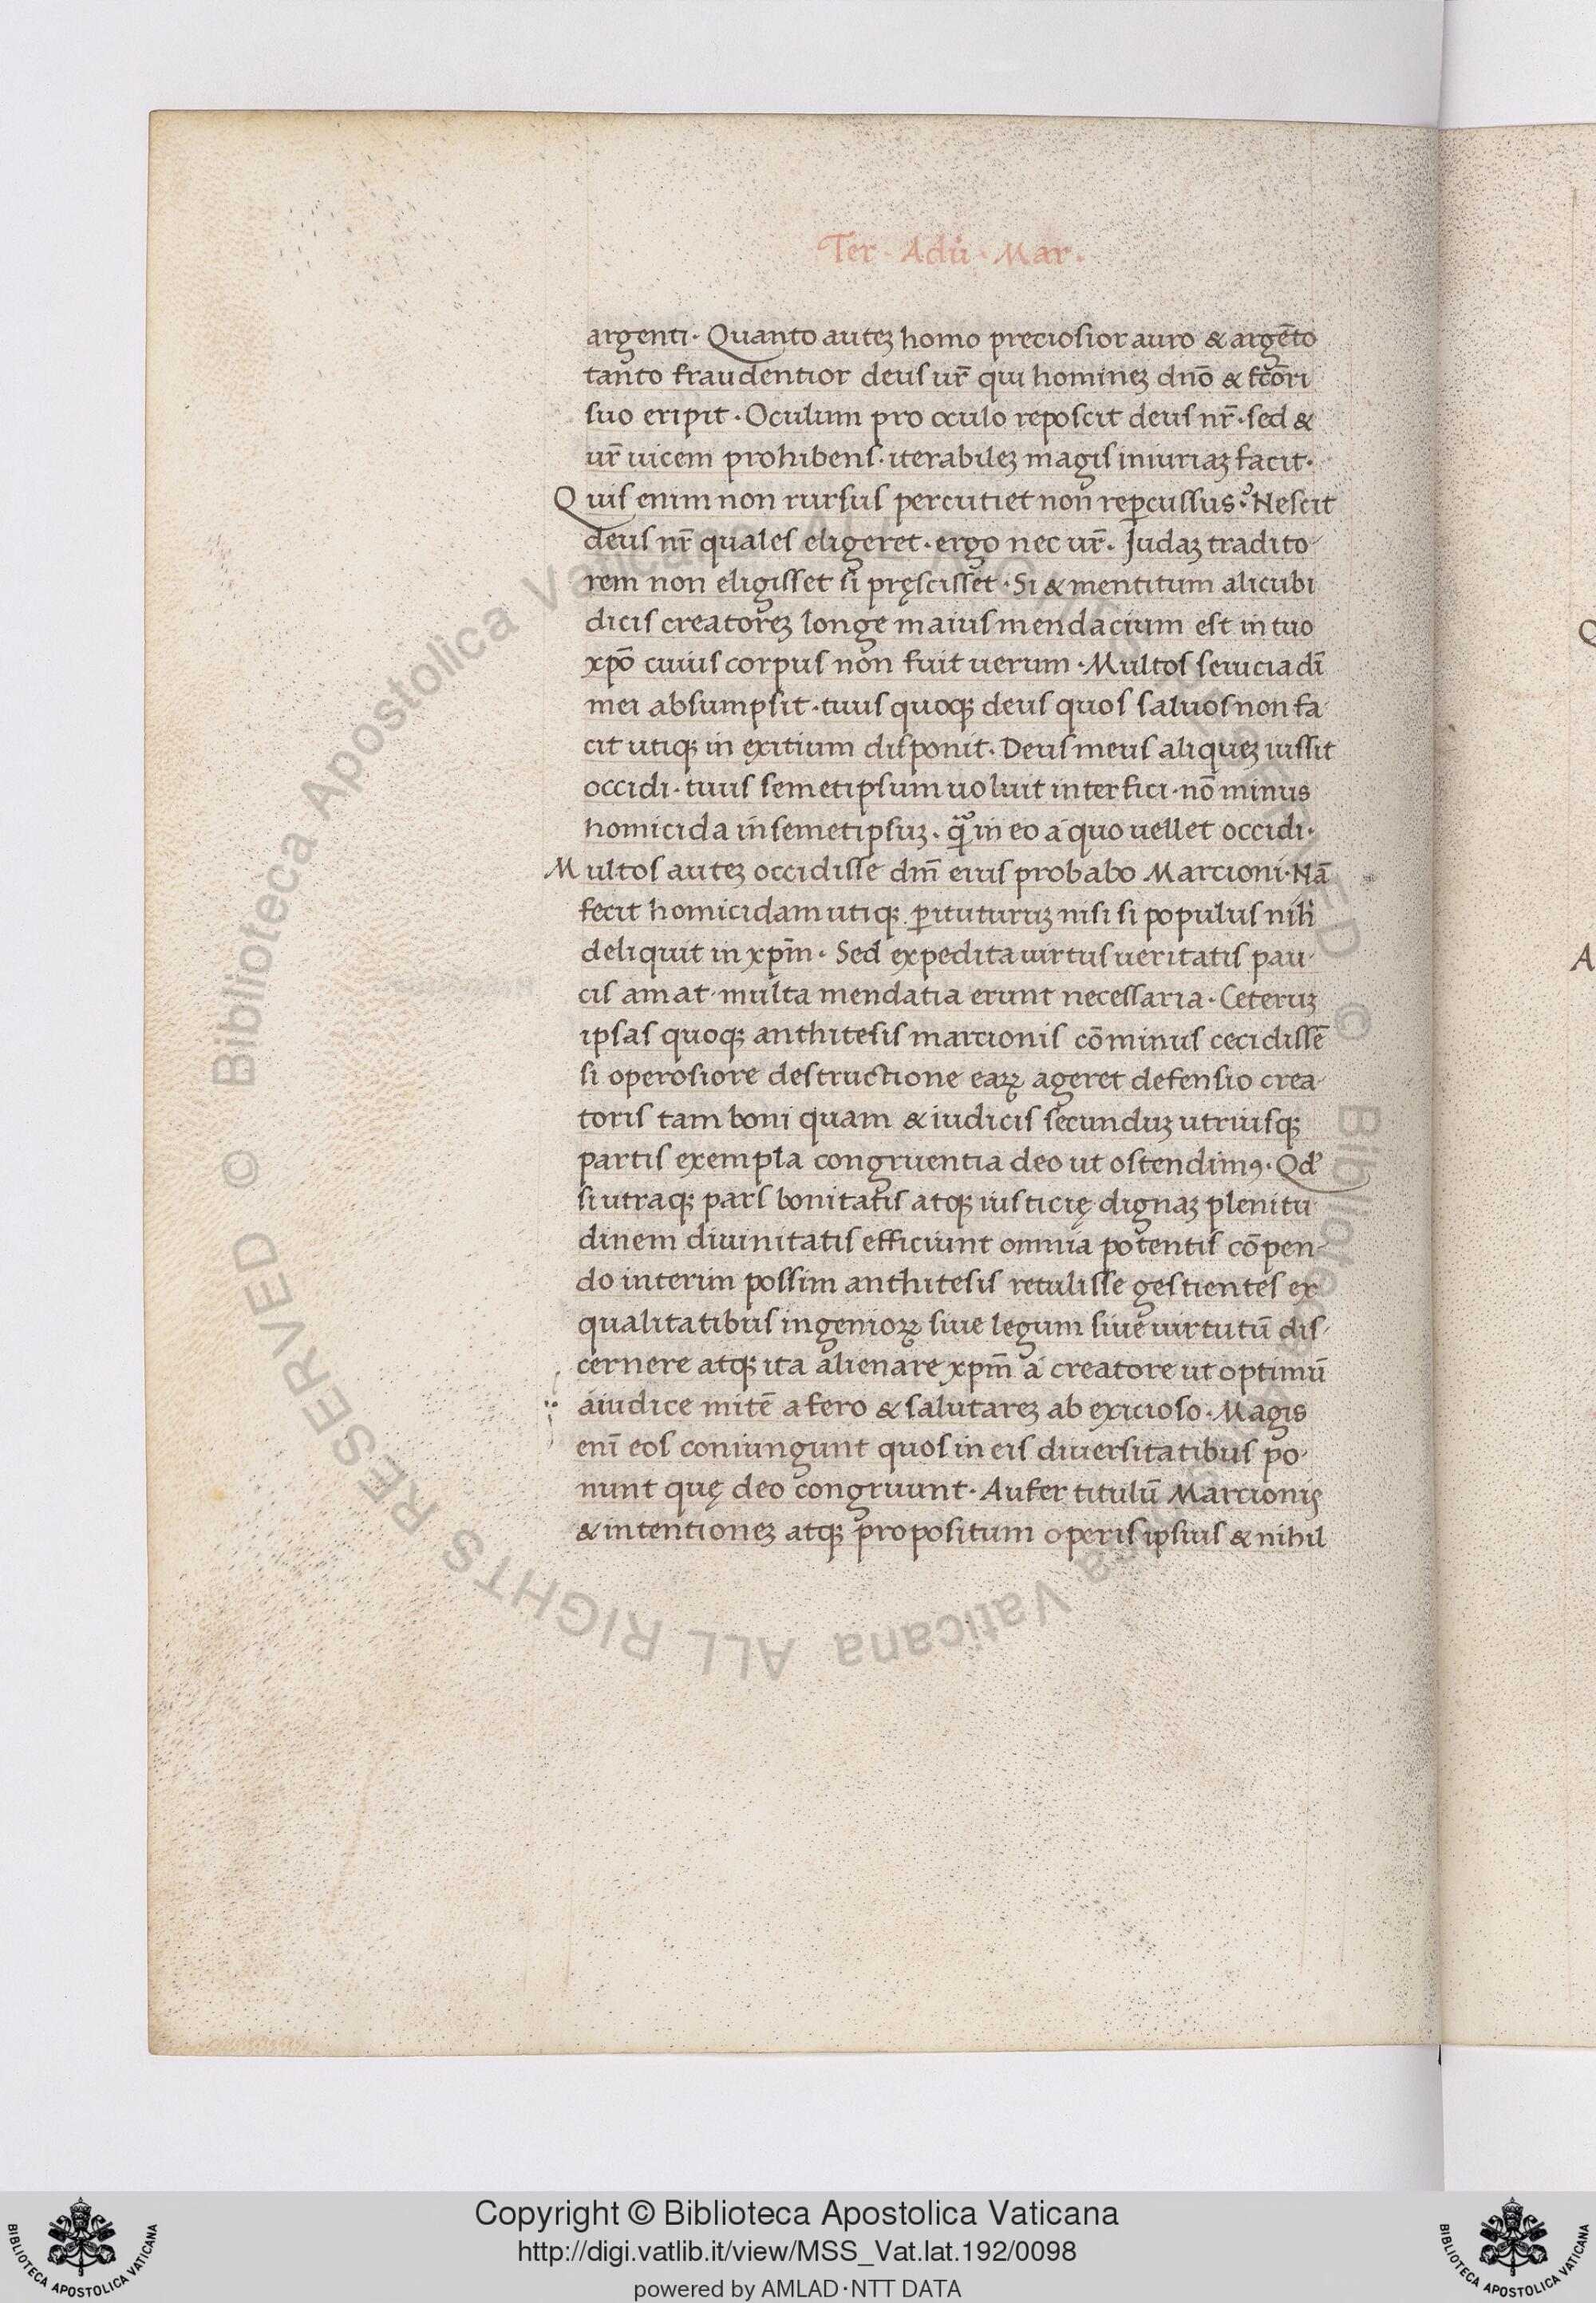 Ter · Adū · Mar ·
argenti · Quanto auteʒ homo preciosior auro & argēto
tanto fraudentior deus ur̄ qui homineʒ dnō & fcōri
suo eripit · Oculum pro oculo reposcit deus nr̄ · sed &
ur̄ uicem prohibens · iterabileʒ magis iniuriaʒ facit ·
Quis enim non rursus percutiet non reꝑcussus? Nescit
deus nr̄ quales eligeret · ergo nec ur̄ · Judaʒ tradito-
rem non eligisset si pręscisset · Si & mentitum alicubi
dicis creatoreʒ longe maius mendacium est in tuo
xpō cuius corpus non fuit uerum · Multos seuicia dī
mei absumpsit · tuus quoqꝫ deus quos saluos non fa-
cit utiqꝫ in exitium disponit · Deus meus aliqueʒ iussit
occidi · tuus semetipsum uoluit interfici · nō minus
homicida in semetipsuʒ · in eo a quo uellet occidi ·
Multos auteʒ occidisse dm̄ eius probabo Marcioni · Nā
fecit homicidam utiqꝫ ꝑituturuʒ nisi si populus nih̄
deliquit in xpm̄ · Sed expedita uirtus ueritatis pau-
cis amat · multa mendatia erunt necessaria · Ceteruʒ
ipsas quoqꝫ anthitesis marcionis cōminus cecidissē
si operosiore destructione eaꝝ ageret defensio crea-
toris tam boni quam & iudicis secunduʒ utriusqꝫ
partis exempla congruentia deo ut ostendimꝰ · Qd'
si utraqꝫ pars bonitatis atqꝫ iusticię dignaʒ plenitu
dinem diuinitatis efficiunt omnia potentis cōpen-
do interim possim anthitesis retulisse gestientes ex
qualitatibus ingenioꝝ siue legum siue uirtutū dis-
cernere atqꝫ ita alienare xpm̄ a creatore ut optimū
a iudice mitē a fero & salutareʒ ab exicioso · Magis
enī eos coniungunt quos in eis diuersitatibus po-
nunt quę deo congruunt · Aufer titulū Marcionis
& intentioneʒ atqꝫ propositum operis ipsius & nihil
Q
A
© Biblioteca Apostolica Vaticana ALL RIGHTS RESERVED © Biblioteca Apostolica Vaticana ALL RIGHTS RESERVED
Copyright © Biblioteca Apostolica Vaticana
http://digi.vatlib.it/view/MSS_Vat.lat.192/0098
powered by AMLAD·NTT DATA
BIBLIOTECA APOSTOLICA VATICANA
BIBLIOTECA APOSTOLICA VATICANA